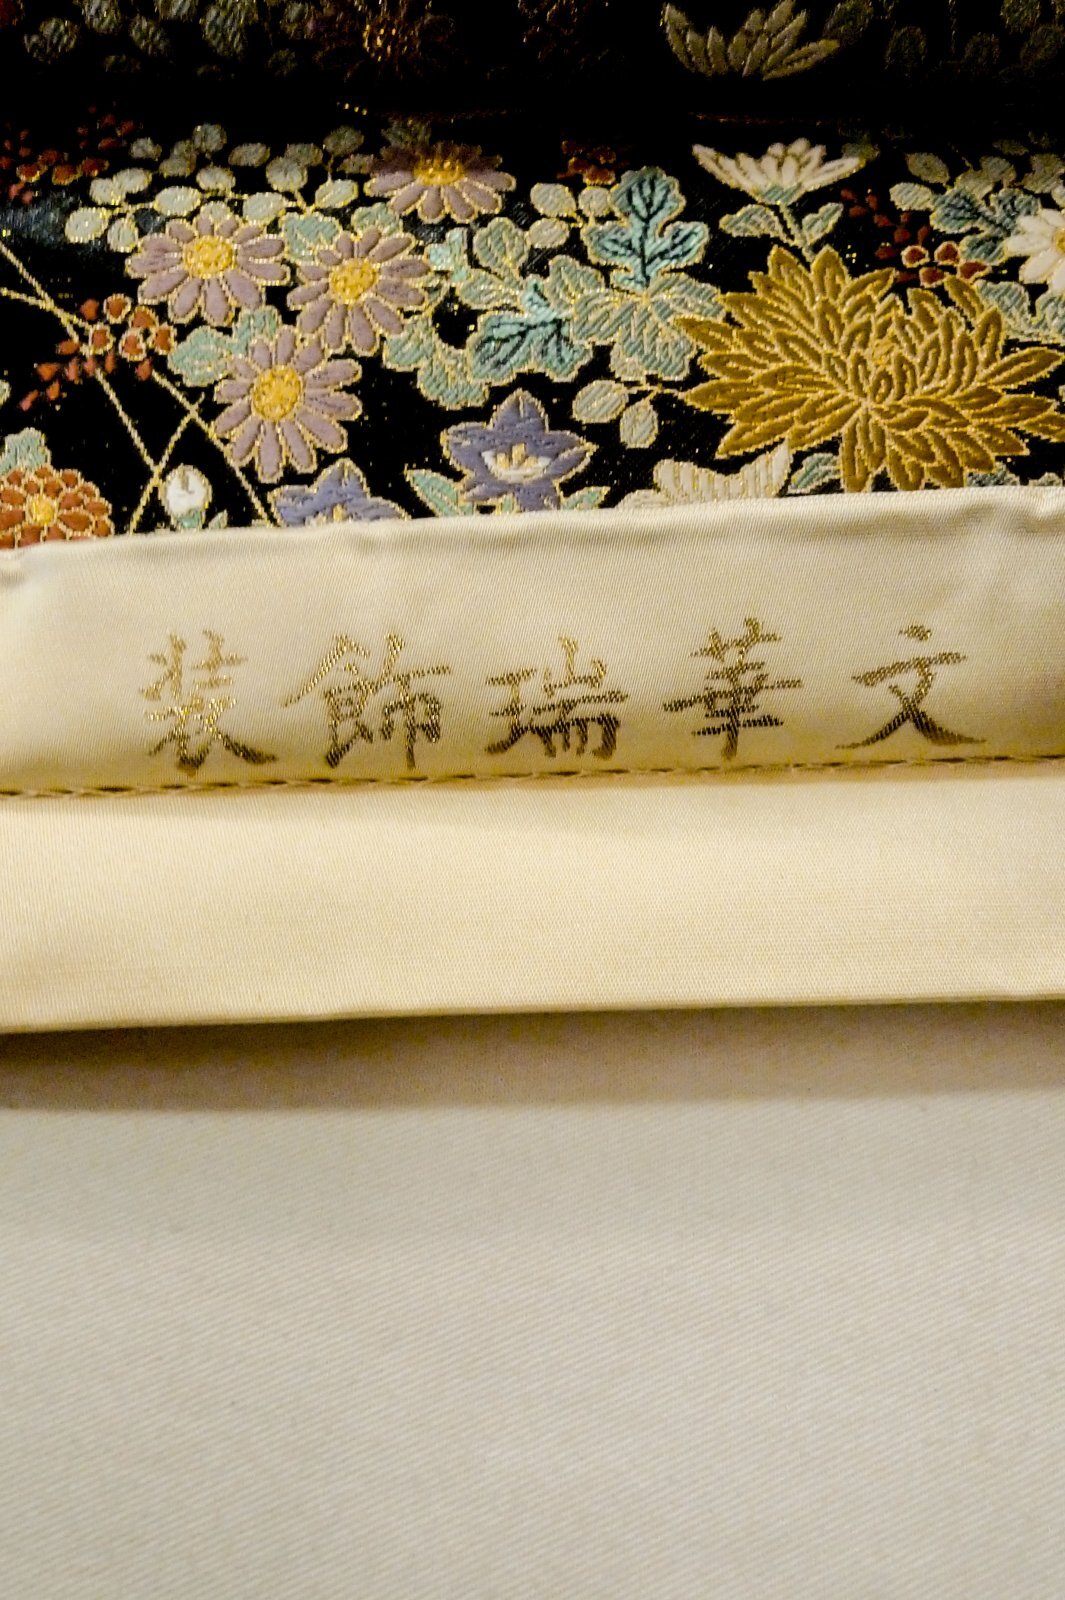 装飾瑞華文